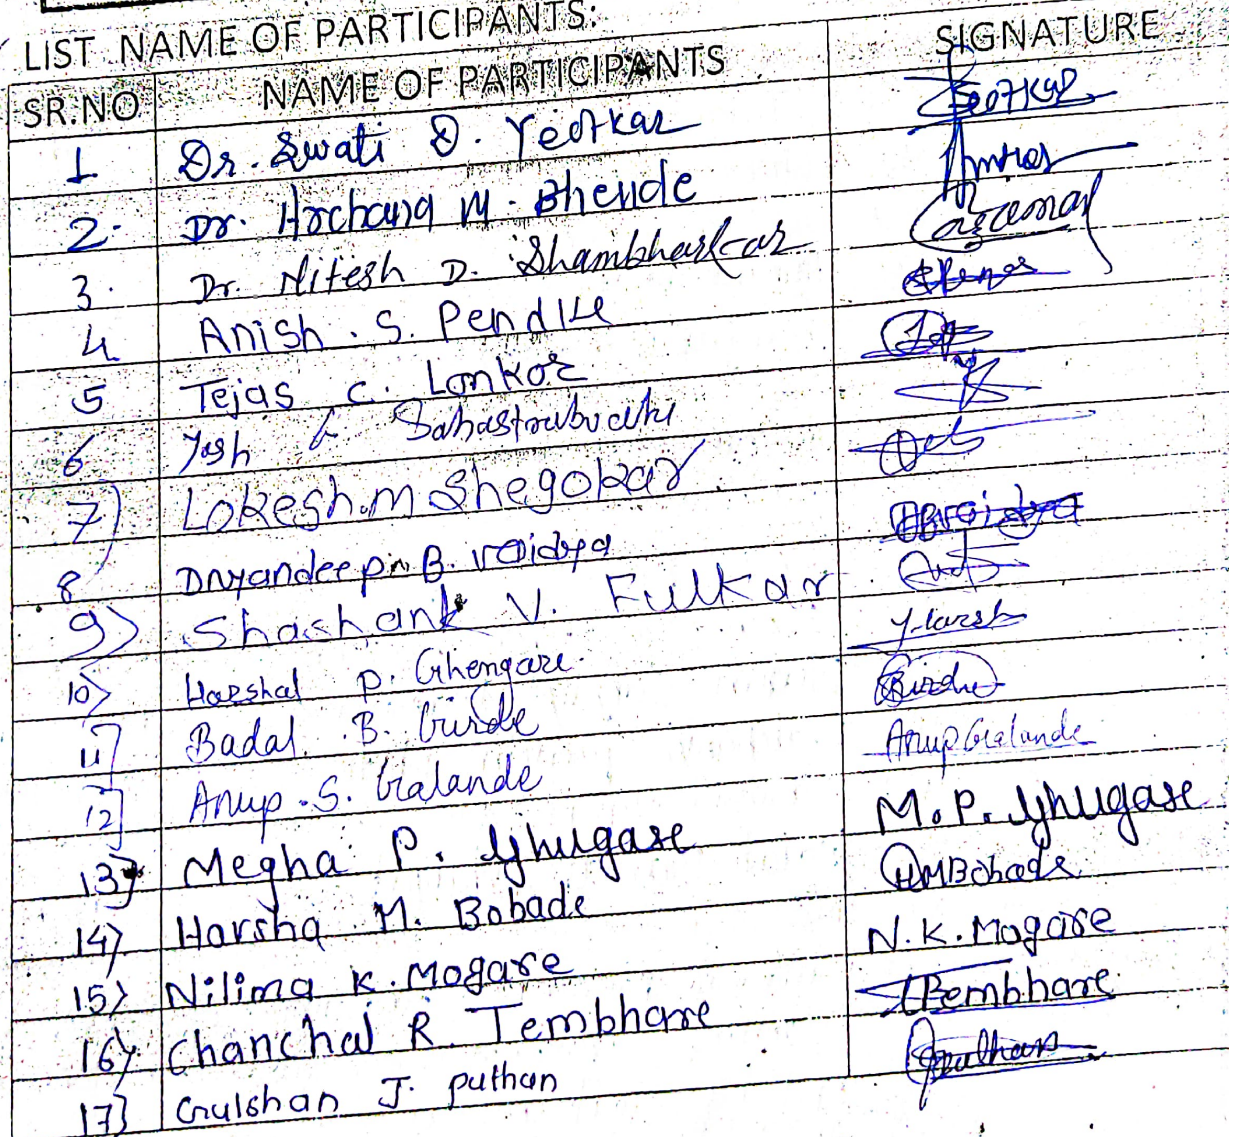 LIST NAME OF PARTICIPANTS:
SR.NO NAME OF PARTICIPANTS SIGNATURE
1 Dr. Swati D. Yeotkar Yeotkar
2. Dr. Archana M. Bhende
3. Dr. Nitesh D. Shambharkar
4 Anish . S. Pendke
5 Tejas C. Lonkar
6 Yash Sahastrabudhe
7) Lokesh.M Shegokar
8 Dnyandeep B. Vaidya
9) Shashank V. Fulkar
10) Harshal P. Ghengare. Harsh
11] Badal. B. Gurde
12] Anup .S. Galande Anup Galande
13] Megha P. Ghugase M.P. Ghugase
14) Harsha M. Bobade HMBobade
15) Nilima K. Mogare N.K.Mogare
16) Chanchal R. Tembhare Tembhare
17] Gulshan J. puthan